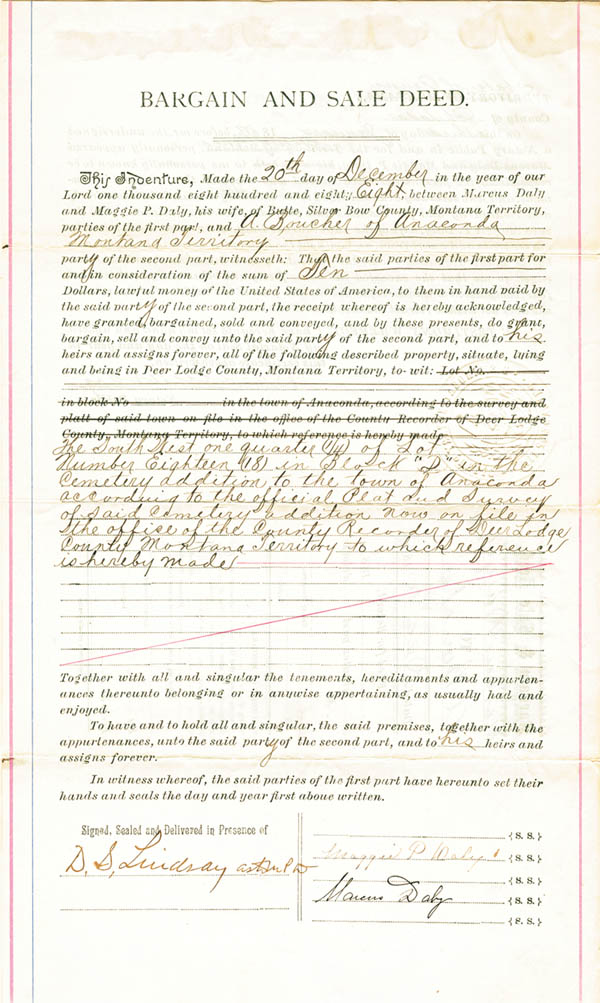 BARGAIN AND SALE DEED.
This Indenture, Made the 20th day of December in the year of our
Lord one thousand eight hundred and eighty Eight, between Marcus Daly
and Maggie P. Daly, his wife, of Butte, Silver Bow County, Montana Territory,
parties of the first part, and A. Boucher of Anaconda
Montana Territory
party of the second part, witnesseth: That the said parties of the first part for
and in consideration of the sum of Ten
Dollars, lawful money of the United States of America, to them in hand paid by
the said party of the second part, the receipt whereof is hereby acknowledged,
have granted, bargained, sold and conveyed, and by these presents, do grant,
bargain, sell and convey unto the said party of the second part, and to his
heirs and assigns forever, all of the following described property, situate, lying
and being in Deer Lodge County, Montana Territory, to-wit: Lot No.
in block No in the town of Anaconda, according to the survey and
platt of said town on file in the office of the County Recorder of Deer Lodge
County, Montana Territory, to which reference is hereby made
The South West one quarter (¼) of Lot
Number Eighteen (18) in Block "D" in the
Cemetery addition to the town of Anaconda
according to the official Plat and Survey
of said Cemetery addition now on file in
the office of the County Recorder of Deer Lodge
County Montana Territory to which reference
is hereby made
Together with all and singular the tenements, hereditaments and appurten-
ances thereunto belonging or in anywise appertaining, as usually had and
enjoyed.
To have and to hold all and singular, the said premises, together with the
appurtenances, unto the said party of the second part, and to his heirs and
assigns forever.
In witness whereof, the said parties of the first part have hereunto set their
hands and seals the day and year first above written.
Signed, Sealed and Delivered in Presence of
D. S. Lindsay
{S. S.}
Maggie P Daly {S. S.}
{S. S.}
Marcus Daly {S. S.}
{S. S.}